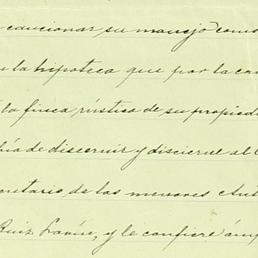 caucionar su manejo como
la hipoteca que por la can
la finca rústica de su propieda
bía de discernir y discierne al
mentario de las menores Ant
Ruiz Lavín, y le confiere ámp